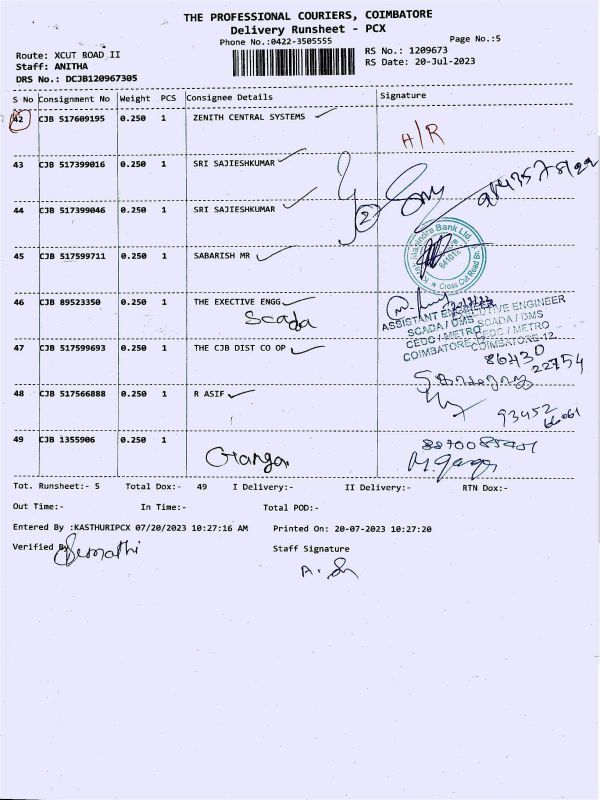 THE PROFESSIONAL COURIERS, COIMBATORE
Delivery Runsheet - PCX
Phone No.:0422-3505555
Page No.:5
Route: XCUT ROAD II
RS No.: 1209673
Staff: ANITHA
RS Date: 20-Jul-2023
DRS No.: DCJB120967305
S No Consignment No Weight PCS Consignee Details Signature
42 CJB 517609195 0.250 1 ZENITH CENTRAL SYSTEMS
H/R
43 CJB 517399016 0.250 1 SRI SAJIESHKUMAR
44 CJB 517399046 0.250 1 SRI SAJIESHKUMAR
2
45 CJB 517599711 0.250 1 SABARISH MR
Mahindra Bank Ltd.
641012
Cross Cut Road Br.
46 CJB 89523350 0.250 1 THE EXECTIVE ENGG
Scada
ASSISTANT EXECUTIVE ENGINEER
SCADA / DMS SCADA / DMS
CEDC / METRO CEDC / METRO
COIMBATORE COIMBATORE-12.
47 CJB 517599693 0.250 1 THE CJB DIST CO OP
86430
22754
48 CJB 517566888 0.250 1 R ASIF
93452
66061
49 CJB 1355906 0.250 1
Ganga
M. Ganga
Tot. Runsheet:- 5 Total Dox:- 49 I Delivery:- II Delivery:- RTN Dox:-
Out Time:- In Time:- Total POD:-
Entered By :KASTHURIPCX 07/20/2023 10:27:16 AM Printed On: 20-07-2023 10:27:20
Verified By
Staff Signature